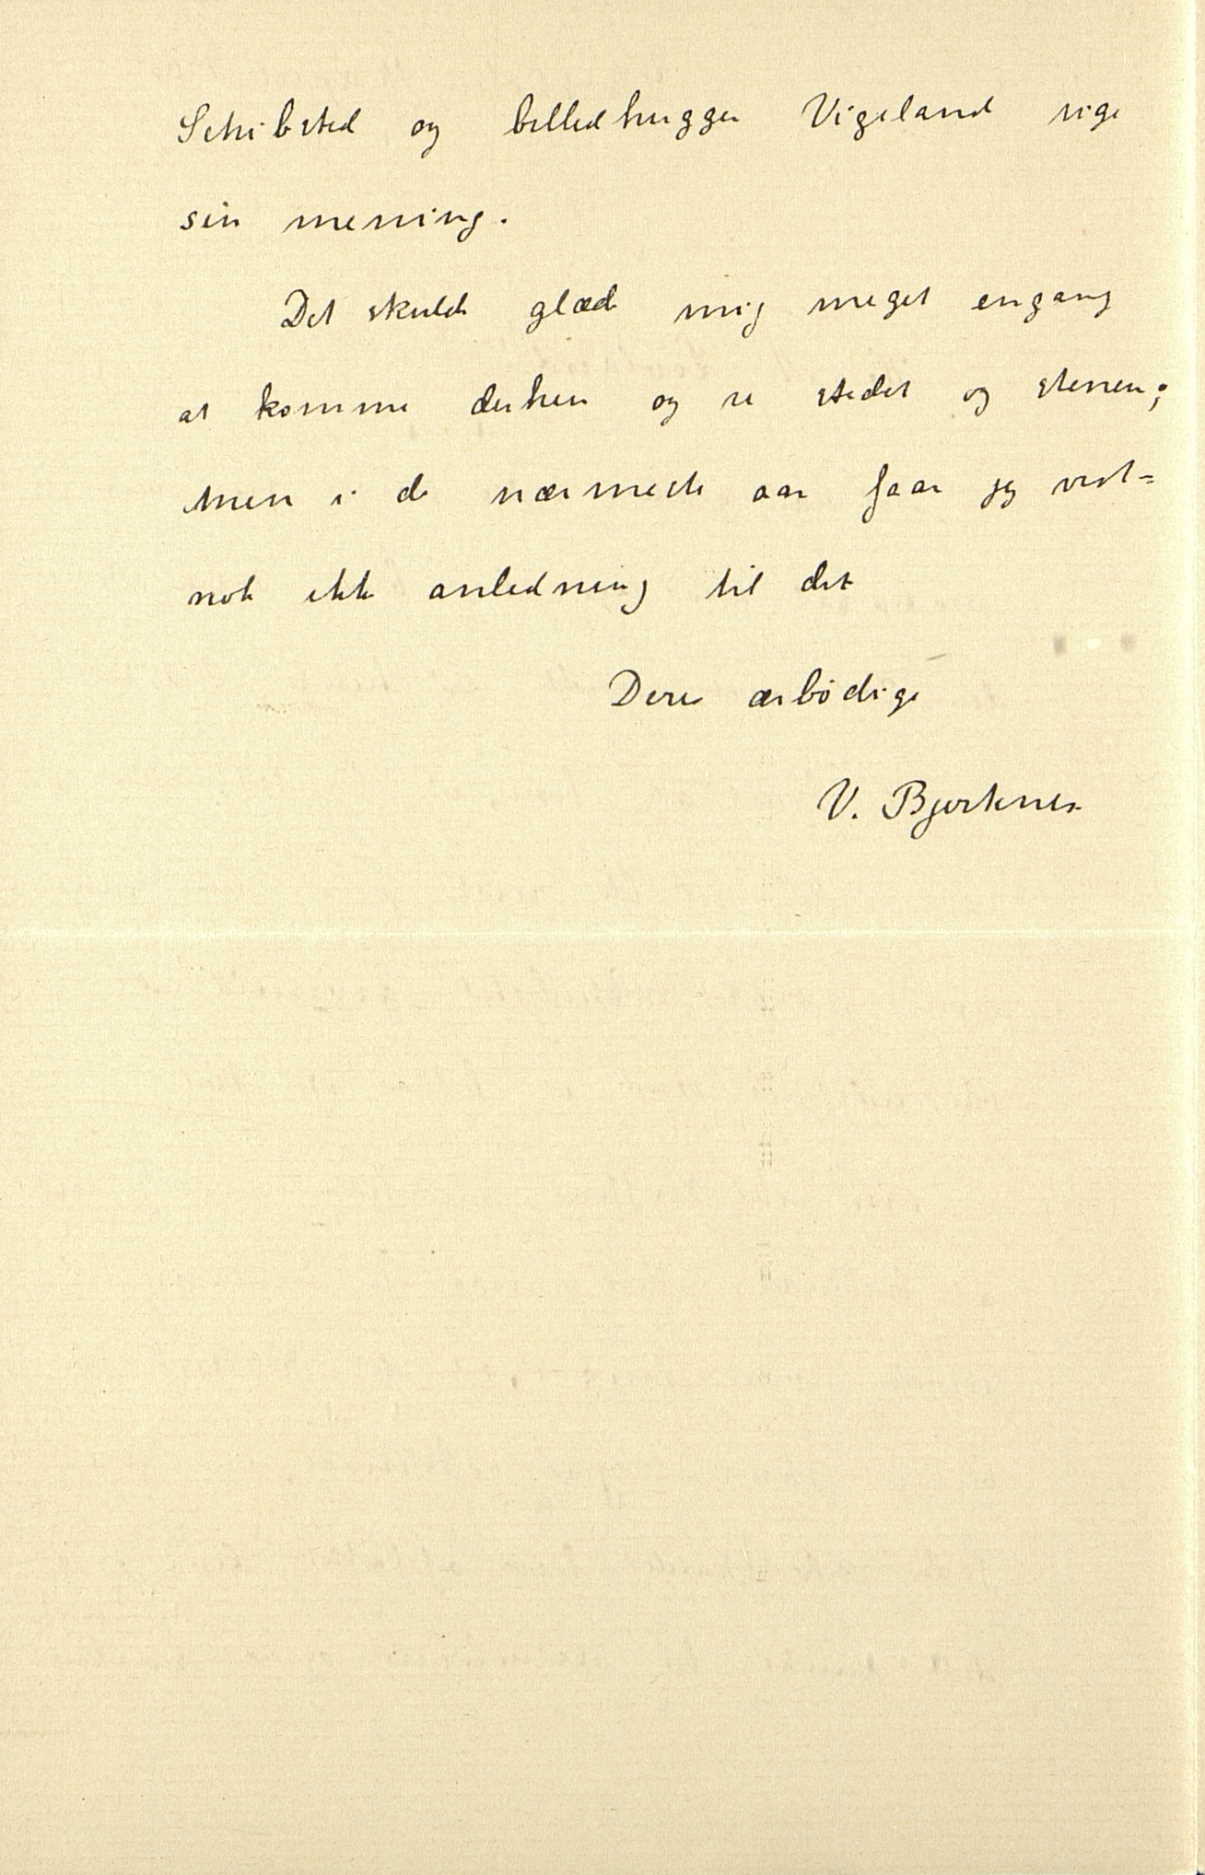 Schibsted og billedhugger Vigeland sige
sin mening.
Det skulde glæde mig meget engang
at komme derhen og se stedet og stenen;
men i de nærmeste aar faar jeg vist=
nok ikke anledning til det
Deres ærbødige
V. Bjerknes